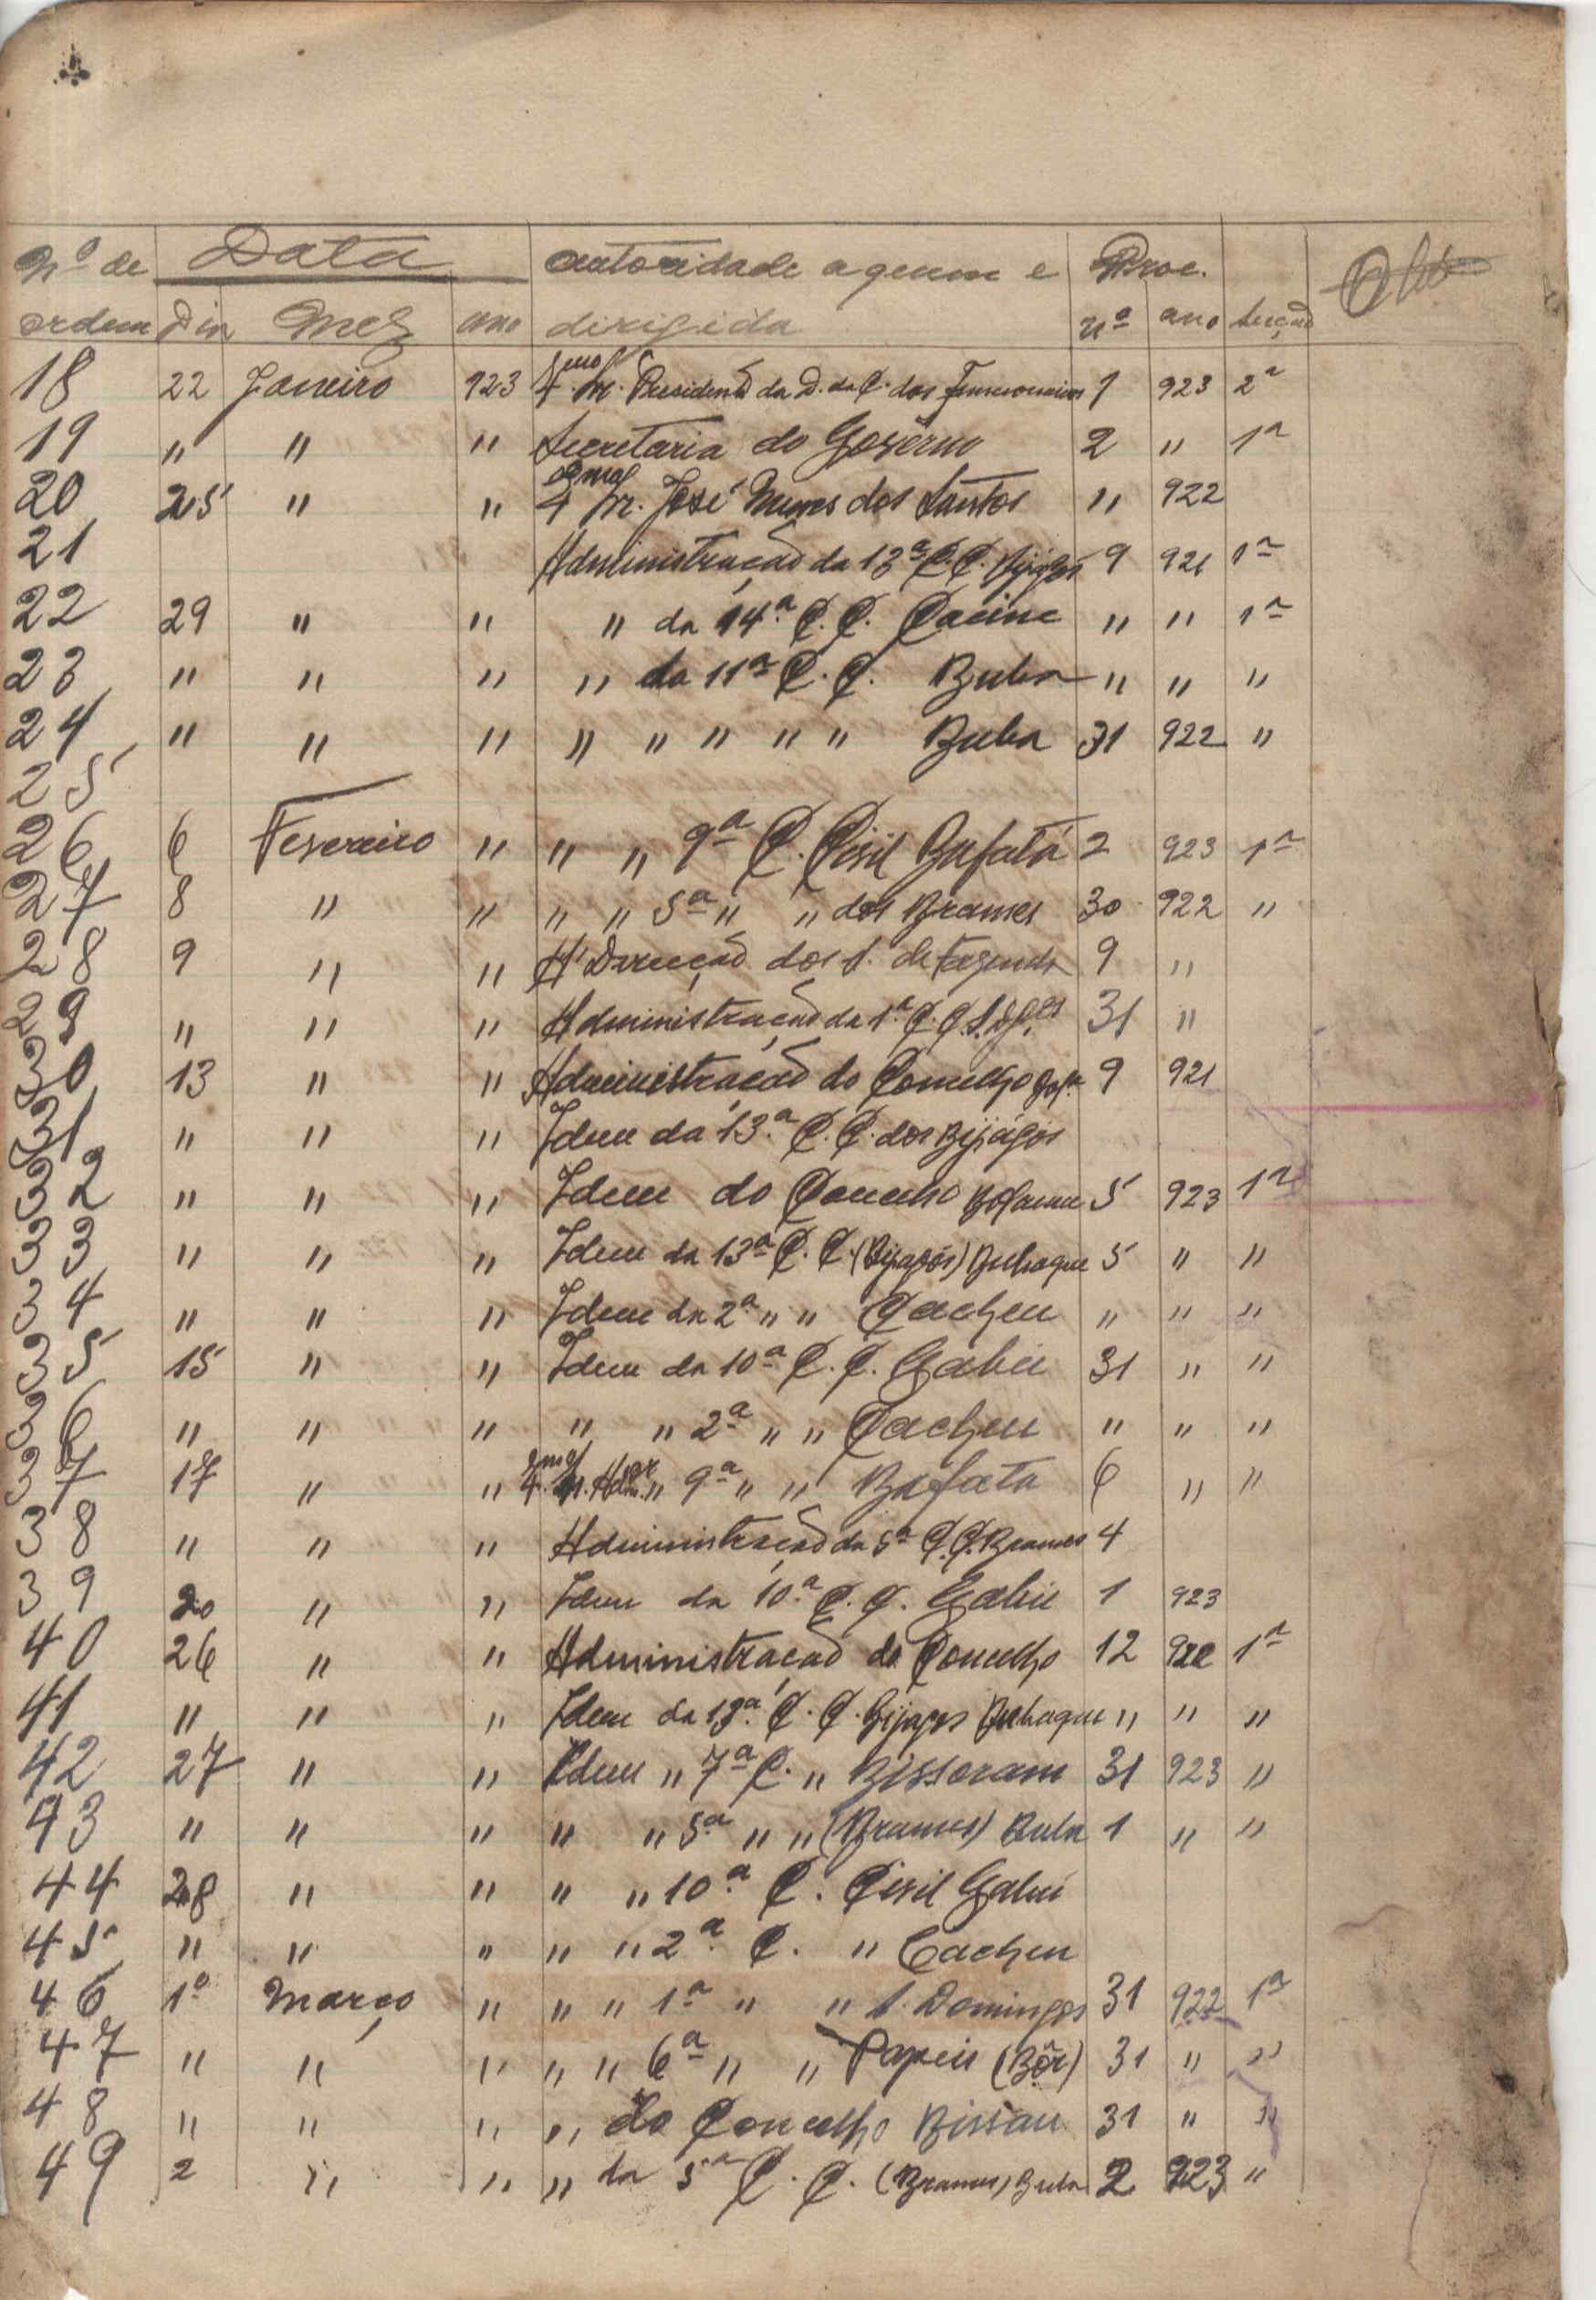 Nº de Data autoridade a quem e Proc.
ordem Dia Mez ano dirigida nº ano Secção
18 22 Janeiro 923 Exmo Sr. Presidente da D. da C. dos Funcionarios 1 923 2ª
19 " " " Secretaria do Govêrno 2 " 1ª
20 25 " " Exmo Sr. José Nunes dos Santos " 922
21 Administração da 13ª C. C. Bijagós 9 921 1ª
22 29 " " " da 14ª C. C. Cacine " " 1ª
23 " " " " da 11ª C. C. Buba " " "
24 " " " " " " " " Buba 31 922 "
25
26 6 Fevereiro " " " 9ª C. Civil Bafatá 2 923 1ª
27 8 " " " " 5ª " " dos Brames 30 922 "
28 9 " " A' Direcção dos S. de Fazenda 9 "
29 " " " Administração da 1ª C. C. S. D.gos 31 "
30 13 " " Administração do Concelho 9 921
31 " " " Idem da 13ª C. C. dos Bijágós
32 " " " Idem do Concelho Bolama 5 923 1ª
33 " " " Idem da 13ª C. C. (Bijagós) Bubaque 5 " "
34 " " " Idem da 2ª " " Cacheu " " "
35 15 " " Idem da 10ª C. C. Gabú 31 " "
36 " " " " " 2ª " " Cacheu " " "
37 17 " " Exmo Sr. Admor " 9ª " " Bafata 6 " "
38 " " " Administração da 5ª C. C. Brames 4
39 20 " " Idem da 10ª C. C. Gabú 1 923
40 26 " " Administração do Concelho 12 922 1ª
41 " " " Idem da 13ª C. C. Bijagos Bubaque " " "
42 27 " " Idem " 7ª C. " Bissoram 31 923 "
43 " " " " " 5ª " " (Brames) Bula 1 " "
44 28 " " " " 10ª C. Civil Gabú
45 " " " " " 2ª C. " Cacheu
46 1º Março " " " 1ª " " S. Domingos 31 922 1ª
47 " " " " " 6ª " " Papeis (Bôr) 31 " "
48 " " " " do Concelho Bissau 31 " "
49 2 " " " da 5ª C. C. (Brames) Bula 2 923 "